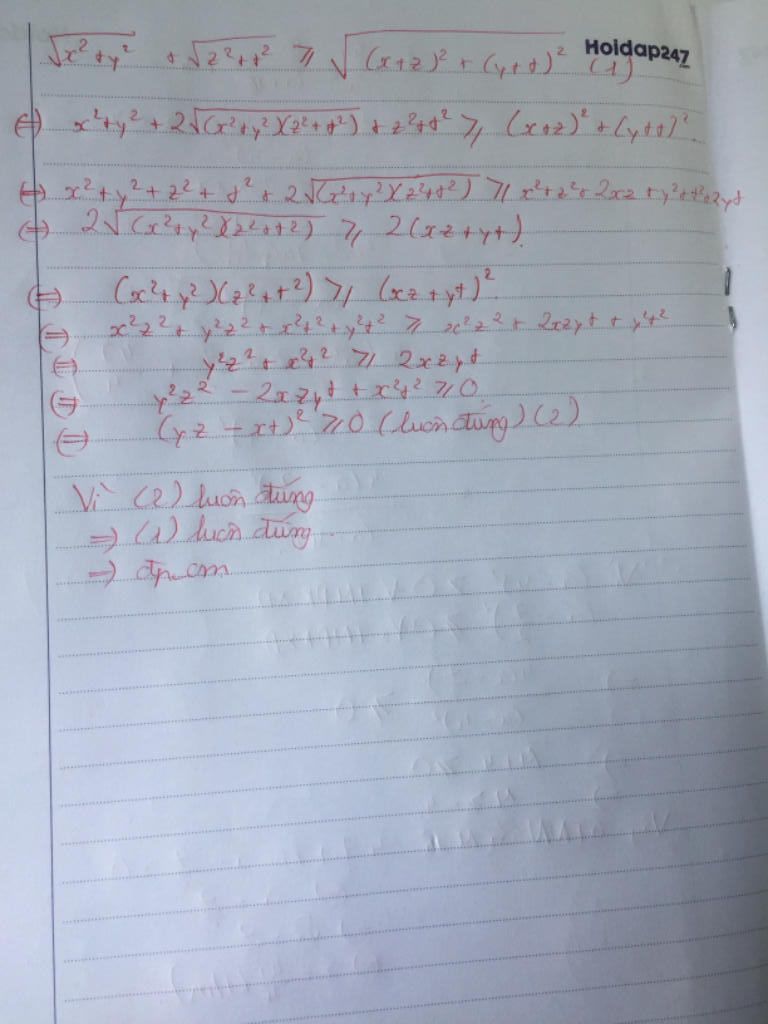 Hoidap247
√(x²+y²) + √(z²+t²) ≥ √((x+z)²+(y+t)²) (1)
⇔ x²+y²+2√((x²+y²)(z²+t²)) + z²+t² ≥ (x+z)²+(y+t)²
⇔ x²+y²+z²+t²+2√((x²+y²)(z²+t²)) ≥ x²+z²+2xz+y²+t²+2yt
⇔ 2√((x²+y²)(z²+t²)) ≥ 2(xz+yt)
⇔ (x²+y²)(z²+t²) ≥ (xz+yt)²
⇔ x²z²+y²z²+x²t²+y²t² ≥ x²z²+2xzyt+y²t²
⇔ y²z²+x²t² ≥ 2xzyt
⇔ y²z² - 2xzyt + x²t² ≥ 0
⇔ (yz - xt)² ≥ 0 (luôn đúng) (2)
Vì (2) luôn đúng
⇒ (1) luôn đúng
⇒ đpcm